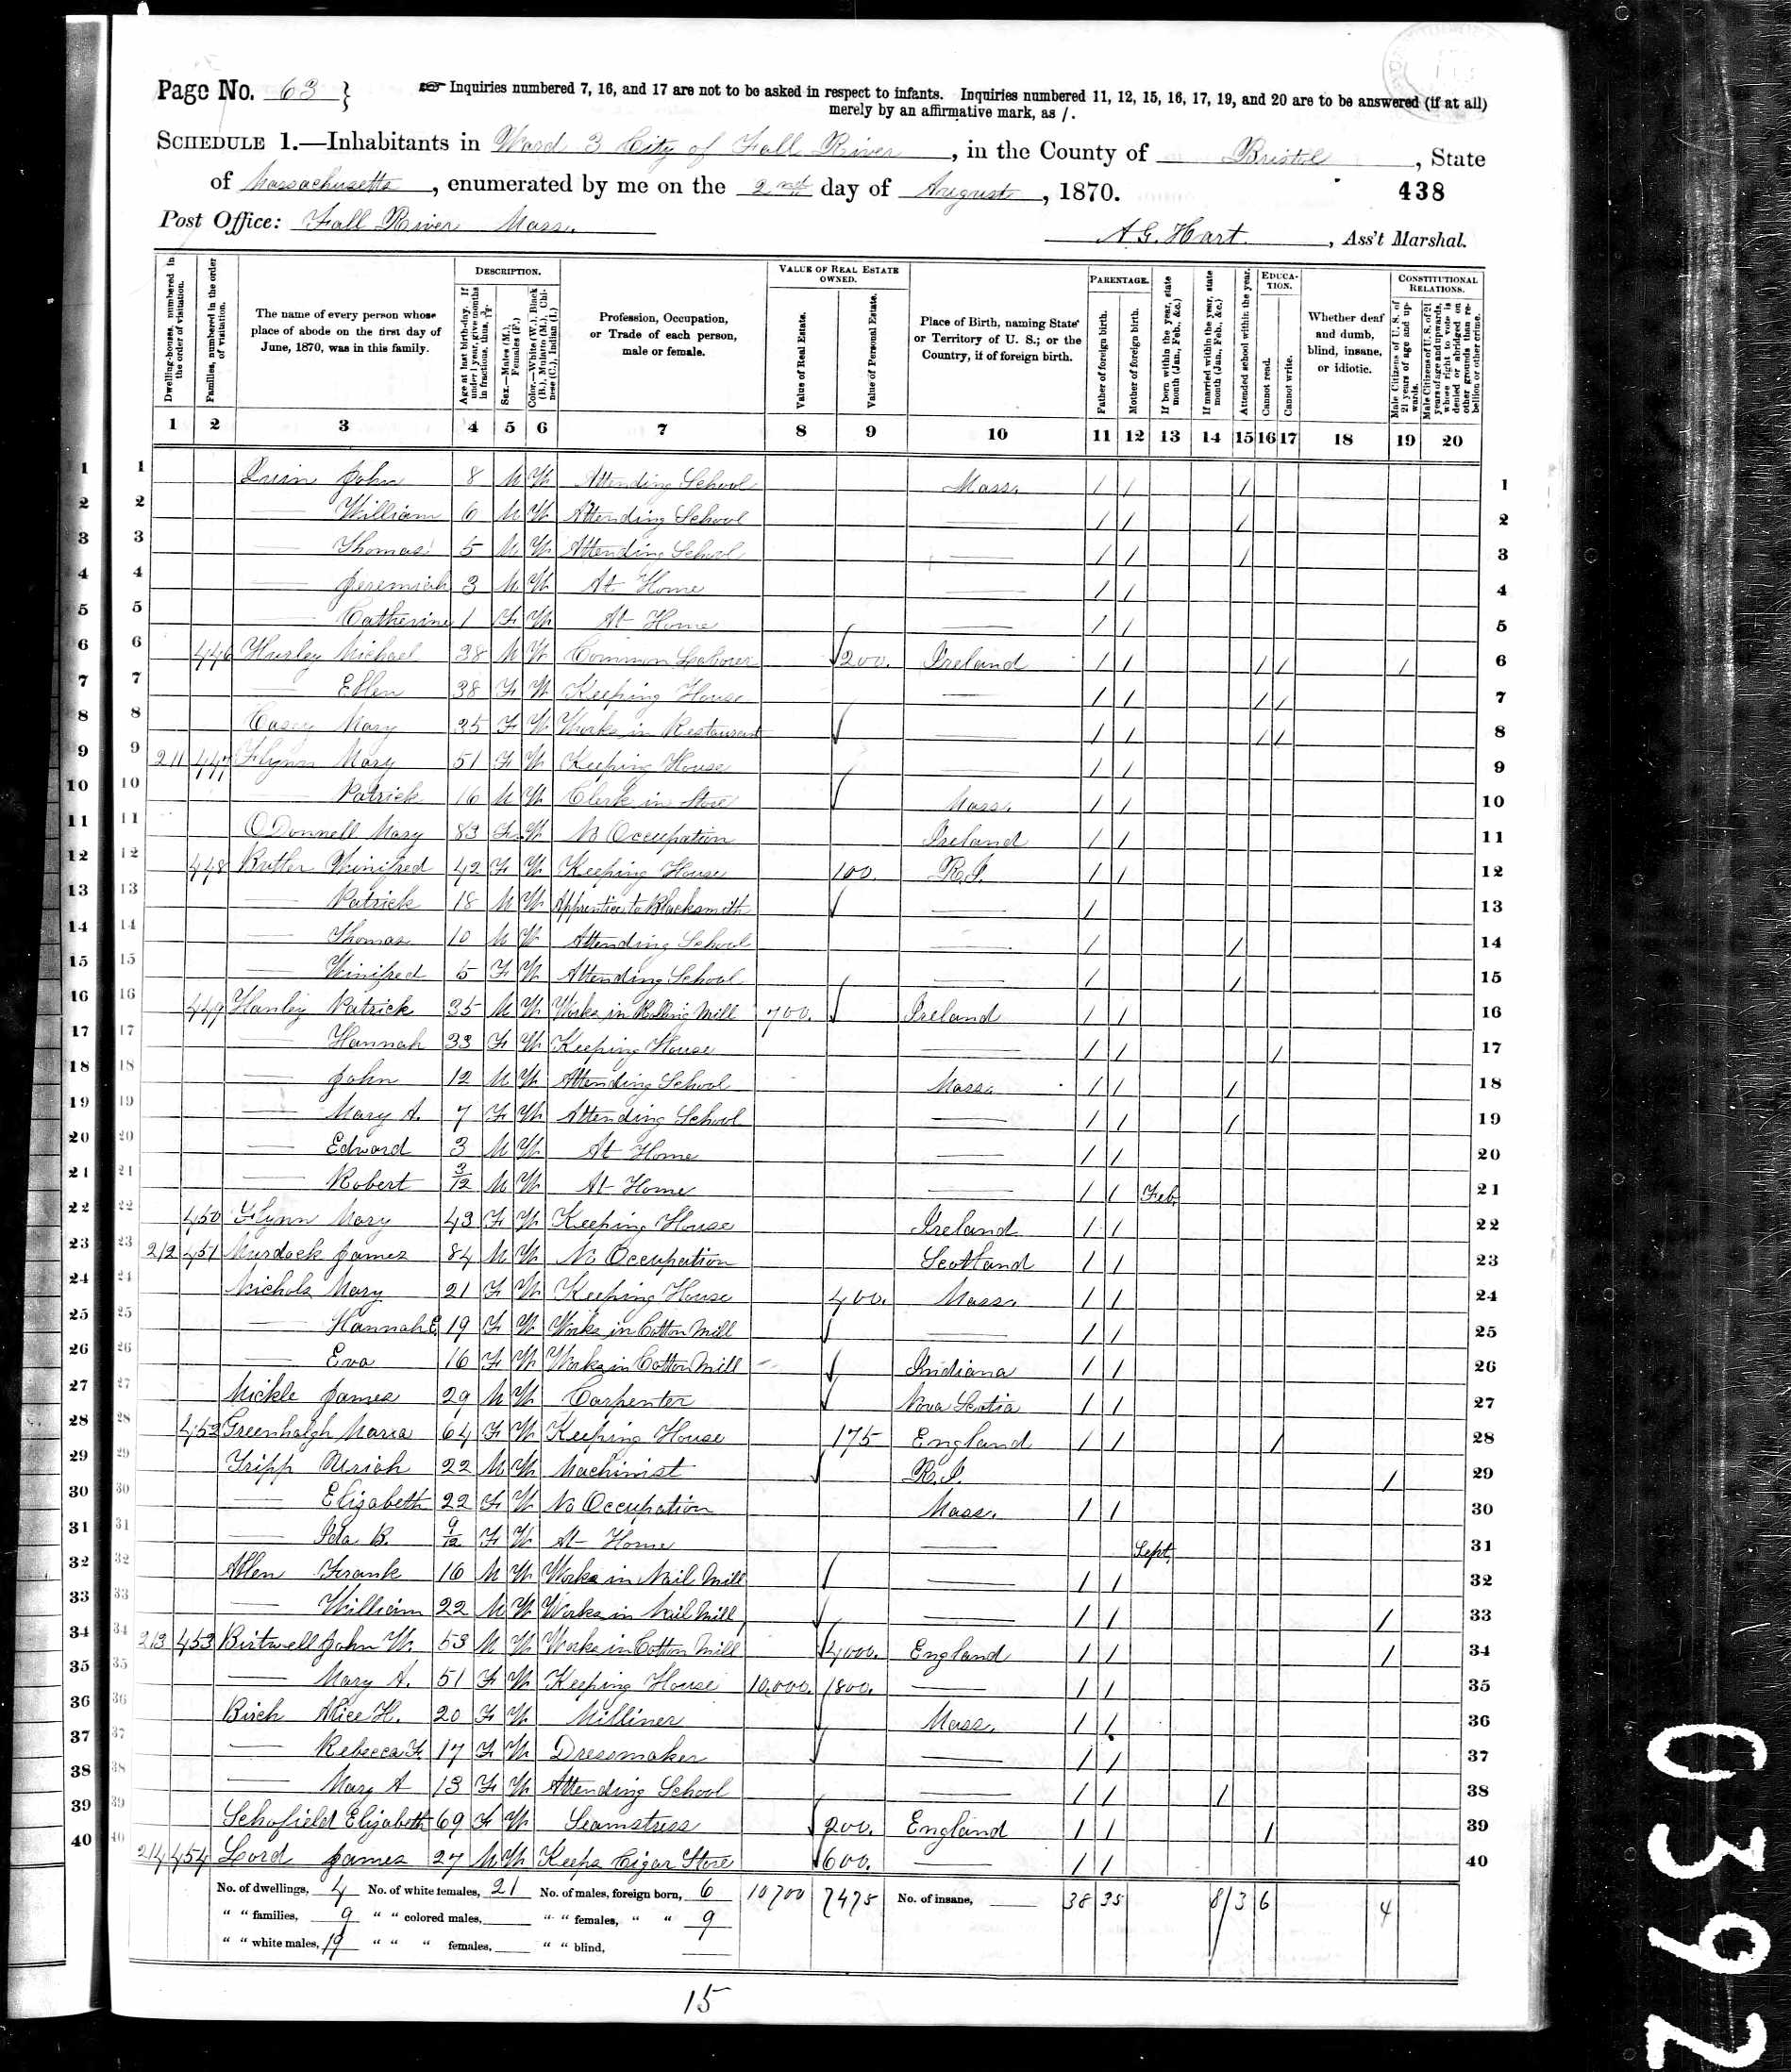 Page No. 63 }
☞ Inquiries numbered 7, 16, and 17 are not to be asked in respect to infants. Inquiries numbered 11, 12, 15, 16, 17, 19, and 20 are to be answered (if at all)
merely by an affirmative mark, as /.
SCHEDULE 1.—Inhabitants in Ward 3 City of Fall River, in the County of Bristol, State
of Massachusetts, enumerated by me on the 2nd day of August, 1870. 438
Post Office: Fall River Mass. A. G. Hart, Ass't Marshal.
DESCRIPTION. VALUE OF REAL ESTATE OWNED. PARENTAGE. EDUCATION. CONSTITUTIONAL RELATIONS.
Dwelling-houses, numbered in the order of visitation.
Families, numbered in the order of visitation.
The name of every person whose place of abode on the first day of June, 1870, was in this family.
Age at last birth-day. If under 1 year, give months in fractions, thus, 3/12
Sex.—Males (M.), Females (F.)
Color.—White (W.), Black (B.), Mulatto (M.), Chinese (C.), Indian (I.)
Profession, Occupation, or Trade of each person, male or female.
Value of Real Estate.
Value of Personal Estate.
Place of Birth, naming State or Territory of U. S.; or the Country, if of foreign birth.
Father of foreign birth.
Mother of foreign birth.
If born within the year, state month (Jan., Feb., &c.)
If married within the year, state month (Jan., Feb., &c.)
Attended school within the year.
Cannot read.
Cannot write.
Whether deaf and dumb, blind, insane, or idiotic.
Male Citizens of U. S. of 21 years of age and upwards.
Male Citizens of U. S. of 21 years of age and upwards, whose right to vote is denied or abridged on other grounds than rebellion or other crime.
1 2 3 4 5 6 7 8 9 10 11 12 13 14 15 16 17 18 19 20
1 1 John 8 M W Attending School Mass. / / / 1
2 2 — William 6 M W Attending School — / / / 2
3 3 — Thomas 5 M W Attending School — / / / 3
4 4 — Jeremiah 3 M W At Home — / / 4
5 5 — Catherine 1 F W At Home — / / 5
6 6 446 Hurley Michael 38 M W Common Laborer 200. Ireland / / / / / 6
7 7 — Ellen 38 F W Keeping House — / / / / 7
8 8 Casey Mary 35 F W Works in Restaurant — / / / / 8
9 9 211 447 Flynn Mary 51 F W Keeping House — / / 9
10 10 — Patrick 16 M W Clerk in Store Mass. / / 10
11 11 O'Donnell Mary 83 F W No Occupation Ireland / / 11
12 12 448 Butler Winifred 42 F W Keeping House 100. R.I. / / 12
13 13 — Patrick 18 M W Apprentice to Blacksmith — / 13
14 14 — Thomas 10 M W Attending School — / / 14
15 15 — Winifred 5 F W Attending School — / / 15
16 16 449 Hanley Patrick 35 M W Works in Rolling Mill 700. Ireland / / 16
17 17 — Hannah 33 F W Keeping House — / / / 17
18 18 — John 12 M W Attending School Mass. / / / 18
19 19 — Mary A. 7 F W Attending School — / / / 19
20 20 — Edward 3 M W At Home — / / 20
21 21 — Robert 3/12 M W At Home — / / Feb. 21
22 22 450 Flynn Mary 43 F W Keeping House Ireland / / 22
23 23 212 451 Murdock James 84 M W No Occupation Scotland / / 23
24 24 Nichols Mary 21 F W Keeping House 400. Mass. / / 24
25 25 — Hannah E. 19 F W Works in Cotton Mill — / / 25
26 26 — Eva 16 F W Works in Cotton Mill Indiana / / 26
27 27 Mickle James 29 M W Carpenter Nova Scotia / / 27
28 28 452 Greenhalgh Maria 64 F W Keeping House 175 England / / / 28
29 29 Tripp Uriah 22 M W Machinist R.I. / 29
30 30 — Elizabeth 22 F W No Occupation Mass. / / 30
31 31 — Ida B. 9/12 F W At Home — Sept. 31
32 32 Allen Frank 16 M W Works in Nail Mill — / / 32
33 33 — William 22 M W Works in Nail Mill — / / / 33
34 34 213 453 Birtwell John W. 53 M W Works in Cotton Mill 4000. England / / / 34
35 35 — Mary A. 51 F W Keeping House 10,000. 1800. — / / 35
36 36 Birch Alice H. 20 F W Milliner Mass. / / 36
37 37 — Rebecca F. 17 F W Dressmaker — / / 37
38 38 — Mary A 13 F W Attending School — / / / 38
39 39 Schofield Elizabeth 69 F W Seamstress 200. England / / / 39
40 40 214 454 Lord James 27 M W Keeps Cigar Store 600. — / / 40
No. of dwellings, 4 No. of white females, 21 No. of males, foreign born, 6 10700 7475 No. of insane, 38 35 8 3 6 4
" " families, 9 " " colored males, " " females, " " 9
" " white males, 19 " " " females, " " blind,
15
0392